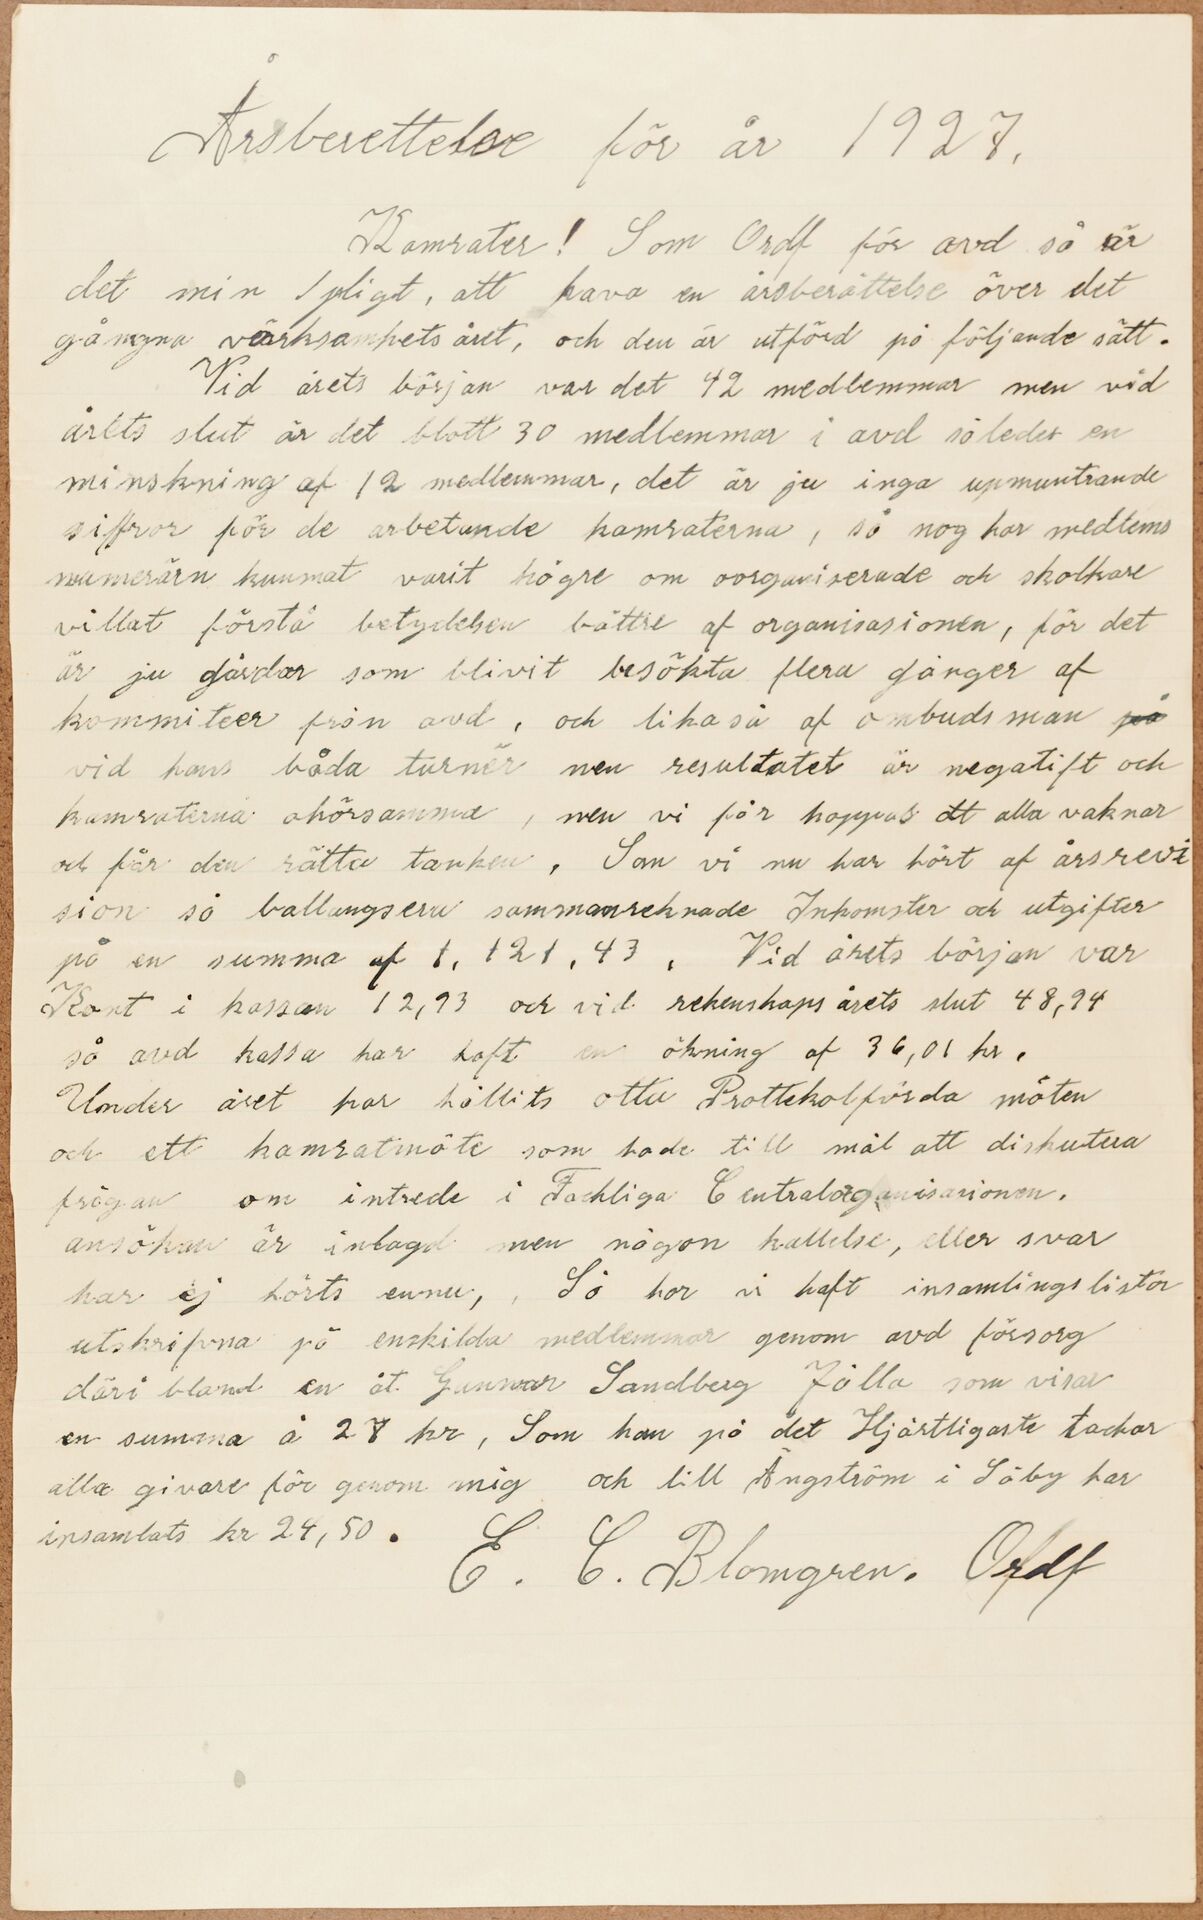 Årsberettelse för år 1927.
Kamrater! Som Ordf för avd så är
det min pligt, att hava en årsberättelse över det
gångna värksamhets året, och den är utförd på följande sätt.
Vid årets början var det 42 medlemmar men vid
årets slut är det blott 30 medlemmar i avd således en
minskning af 12 medlemmar, det är ju inga upmuntrande
siffror för de arbetande kamraterna, så nog har medlems
numerärn kunnat varit högre om oorganiserade och skolkare
villat förstå betydelsen bättre af organisasionen, för det
är ju gårdar som blivit besökta flera gånger af
kommiteer från avd, och likaså af ombudsman på
vid hans båda turnér men resultatet är negatift och
kamraterna ohörsamma, men vi får hoppas att alla vaknar
och får den rätta tanken. Som vi nu har hört af årsrevi
sion så ballangsera sammanreknade Inkomster och utgifter
på en summa af 1,121,43. Vid årets början var
Kont i kassan 12,93 och vid rekenskaps årets slut 48,94
så avd kassa har haft en ökning af 36,01 kr.
Under året har hållits otta Prottekolförda möten
och ett kamratmöte som hade till mål att diskutera
frågan om intrede i Fackliga Centralorganisasionen.
ansökan är inlagd men någon kallelse, eller svar
har ej hörts ennu, Så har vi haft insamlingslistor
utskrifvna på enskilda medlemmar genom avd försorg
däri bland en åt Gunnar Sandberg Jälla som visar
en summa å 28 kr, Som han på det Hjärtligaste tackar
alla givare för genom mig och till Ångström i Säby har
insamlats kr 24,50.
E. C. Blomgren. Ordf